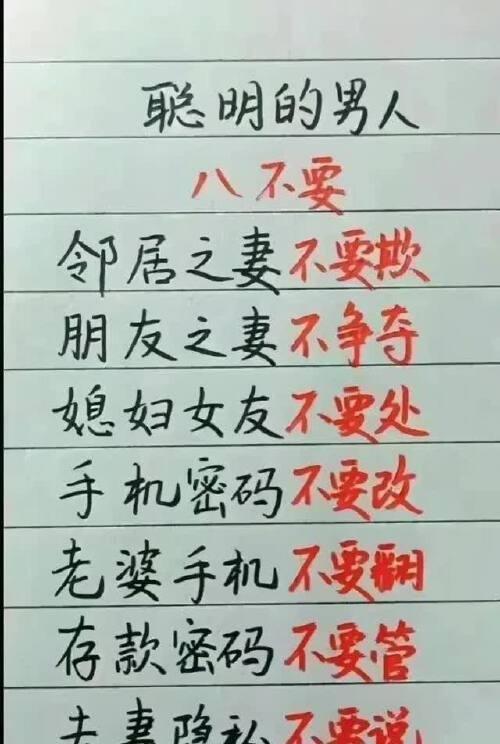 聪明的男人
八不要
邻居之妻不要欺
朋友之妻不争夺
媳妇女友不要处
手机密码不要改
老婆手机不要翻
存款密码不要管
夫妻隐私不要说